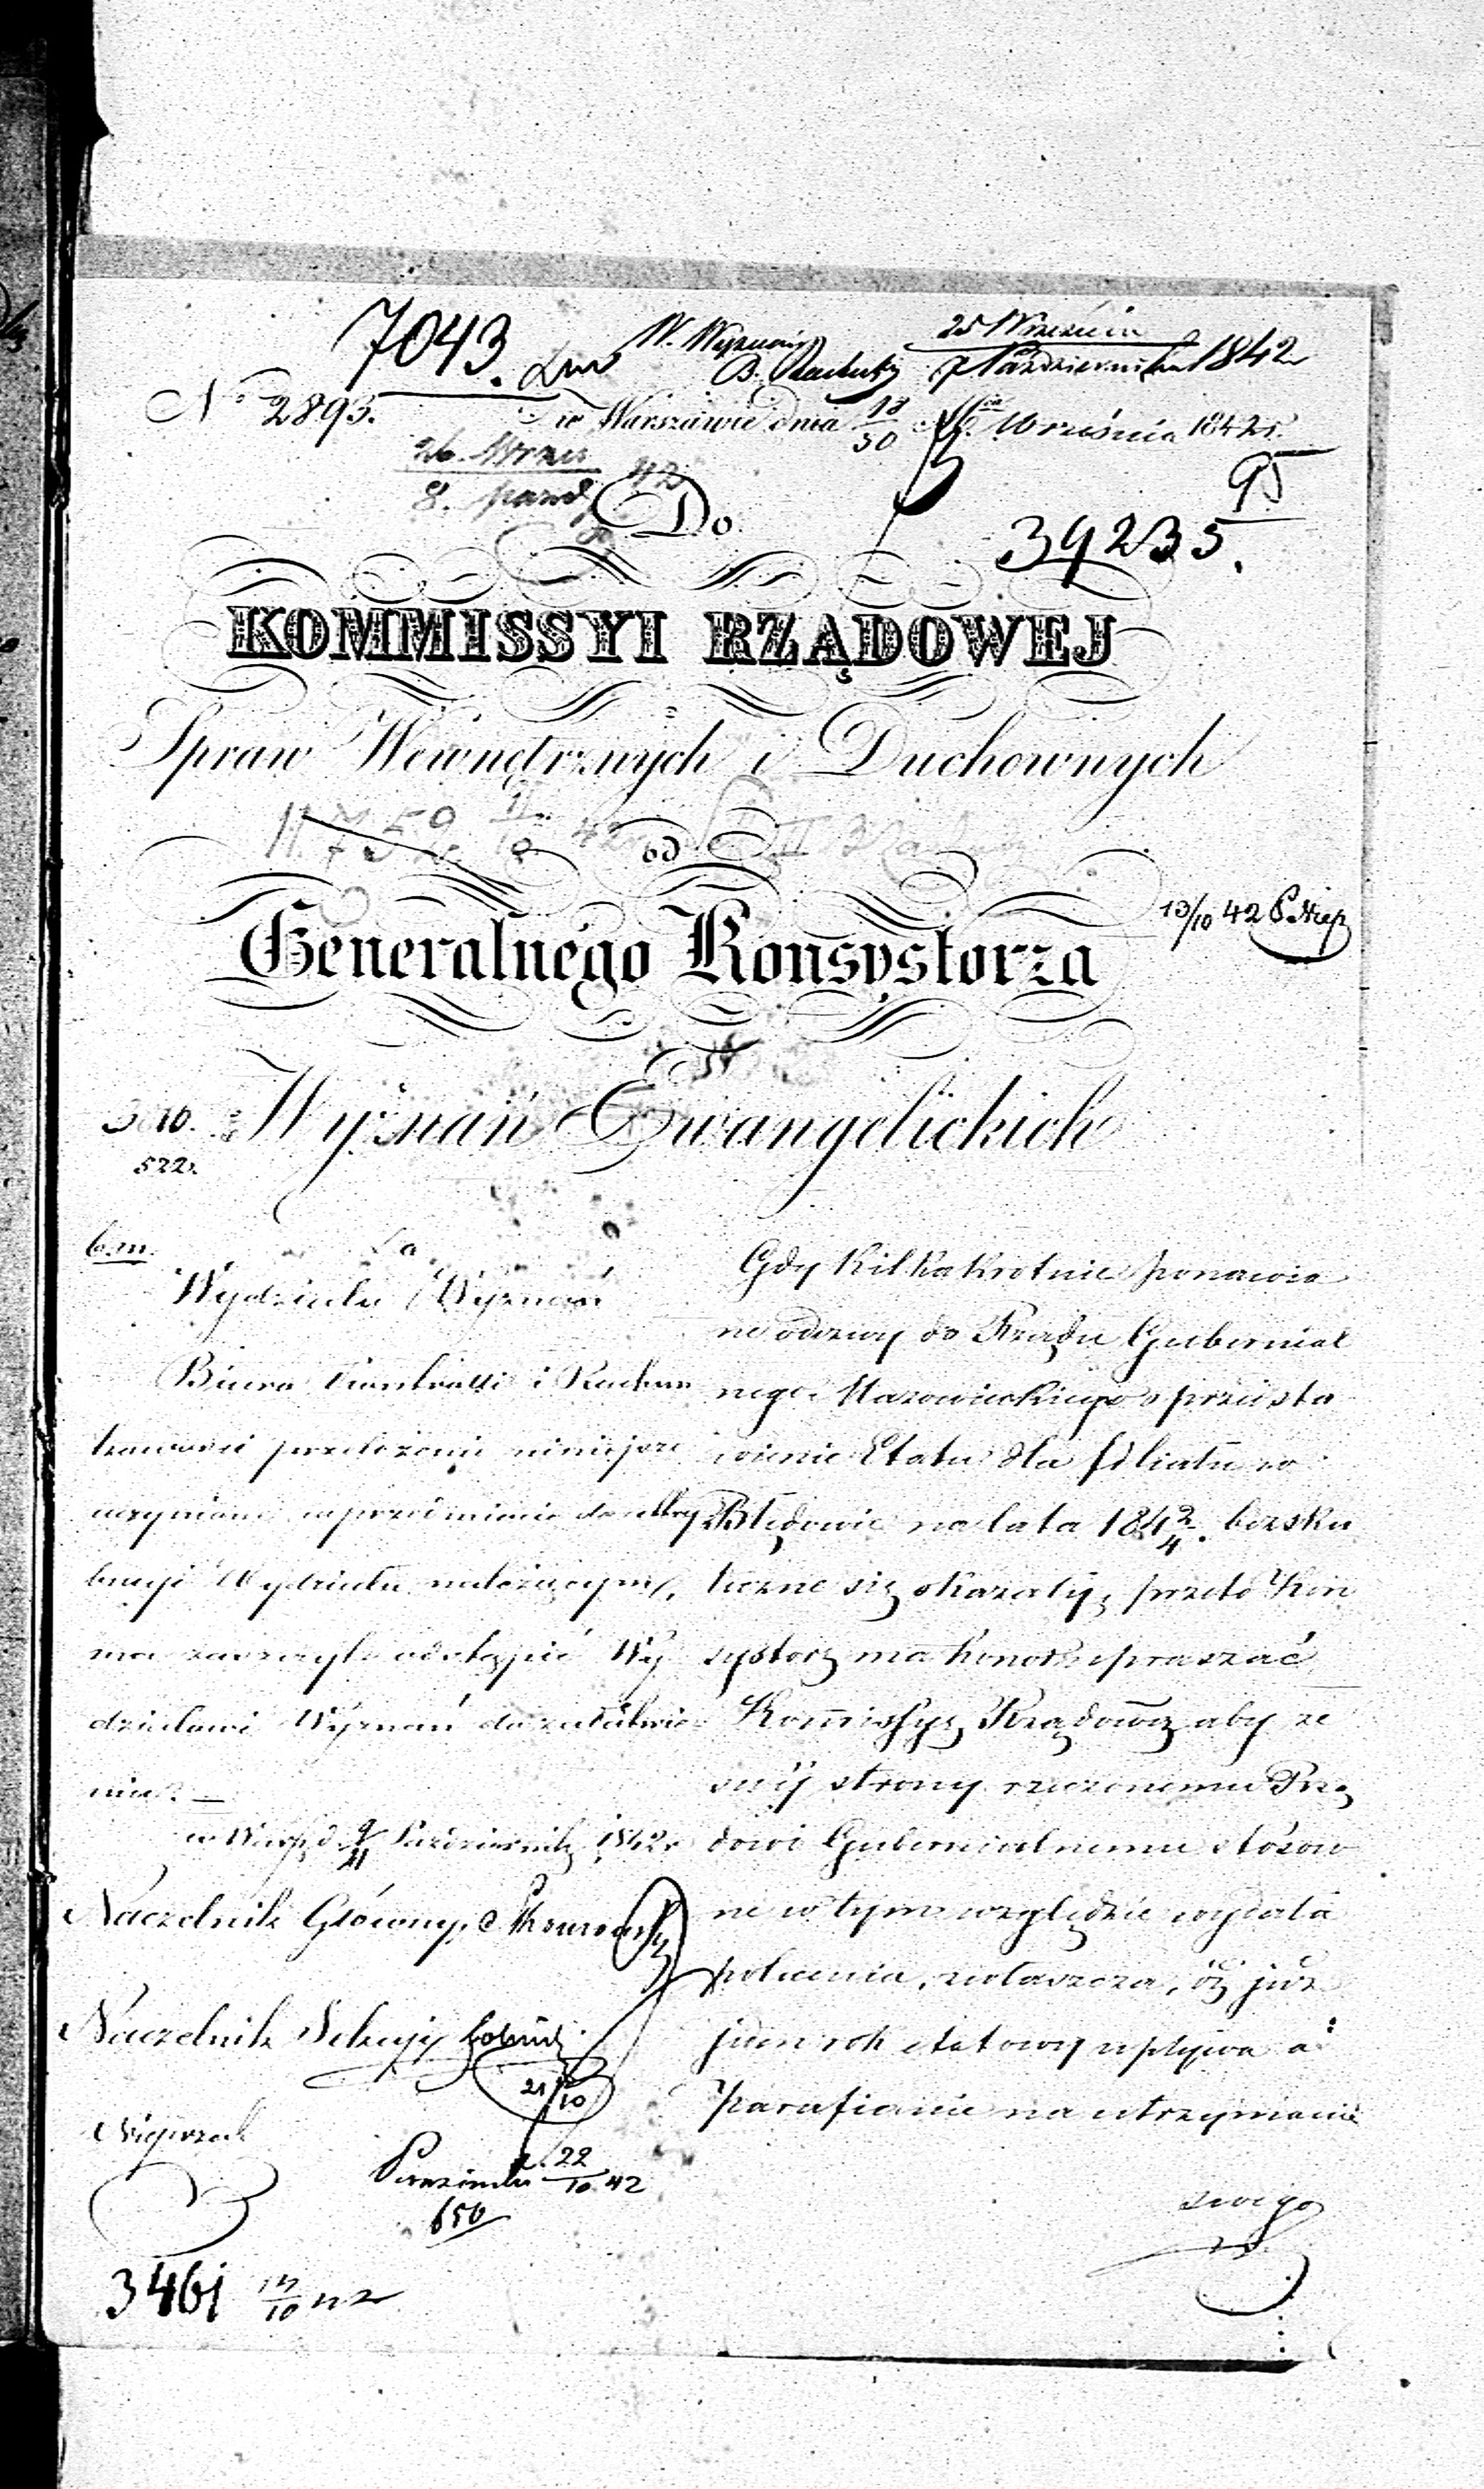 7043.
W. Wyznań
25 Września
7 Października 1842
No 2893.
w Warszawie dnia 18/30 Września 1842 r.
26. Wrześ
8. paźd 42
95
Do
39235.
KOMMISSYI RZĄDOWEJ
Spraw Wewnętrznych i Duchownych
od
13/10 42
Generalnego Konsystorza
Wyznań Ewangelickich
522.
Wydziału Wyznań
Biuro Kontrolli i Rachun
przełożenie niniejsze
w przedmiocie do attry
bucyi Wydziału należącym,
ma zaszczyt odstąpić Wy
działowi Wyznań do załatwie
nia. —
w Warsz. d. 9/21 Październik 1842 r
Naczelnik Główny
Naczelnik Sekcyi
21/10
22/10 42
650
3461 13/10 42
Gdy kilkakrotnie ponawia
ne odezwy do Rządu Gubernial
nego Mazowieckiego o przedsta
wienie Etatu dla filiału w
Błędowie na lata 184 2/4. bezsku
teczne się okazały, przeto Kon
systorz ma honor upraszać
Kommissyę Rządową aby ze
swéj strony rzeczonemu Rzą
dowi Gubernialnemu stósow
ne w tym względzie wydała
polecenia, zwłaszcza, iż już
jeden rok etatowy upływa a
Parafianie na utrzymanie
swego